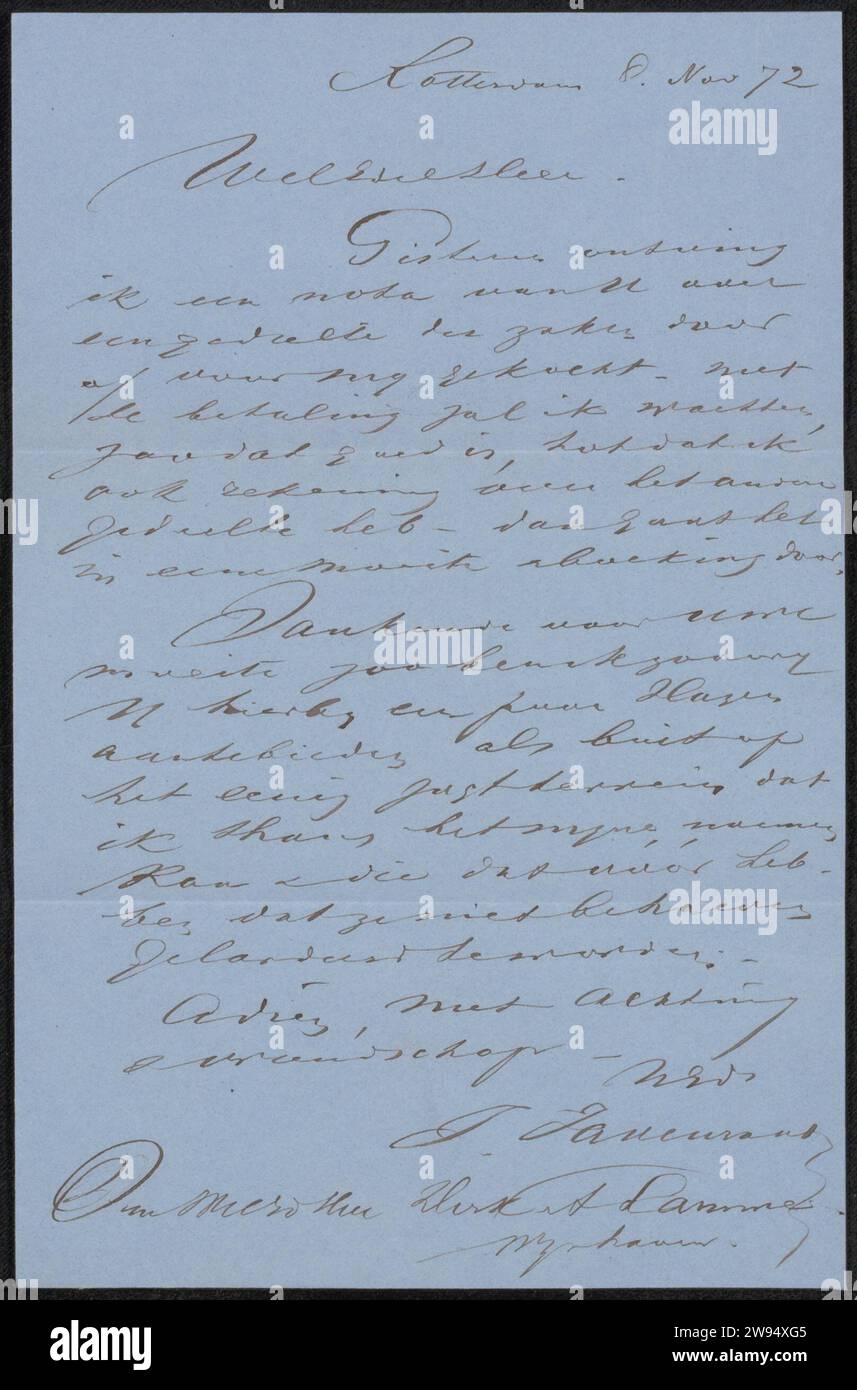 Rotterdam 8. Nov 72
WelEdele Heer.
Gisteren ontving
ik een nota van U over
een gedeelte der zaken door
of voor my gekocht – met
de betaling zal ik wachten,
zoo dat goed is, totdat ik
ook rekening over het andere
gedeelte heb – dan gaat het
in eene moeite door,
Dankende voor uwe
moeite zoo ben ik zoo vry
U hierby een paar Hazen
aantebieden als buit op
het eenig jagtterrein dat
ik thans het myne noemen
kan & die dat vóór heb-
ben dat ze niet behoeven
gelardeerd te worden. –
Adieu, met achting
& vriendschap –
UEd
J.
Den WelEd Heer Dirk A Lamme
Wynhaven.
alamy
Image ID: 2W94XG5
www.alamy.com